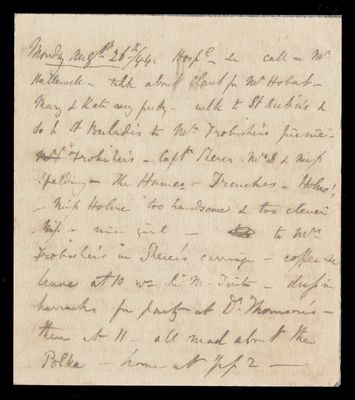 Monday Augst 26th/44. Hospl - &c call on Mr
Hallewell - talk about Claret for Mr
Mary & Kate very pretty - walk to St Aubin's &
do to St to Mrs Frobisher's picnic -
Frobisher's - Capt Sterer. Mrs S & Miss
Spalding - The Humes - Frenches - Holmes'
- Miss Holme too handsome & too clever
- nice girl - to Mrs
Frobisher's in carriage - coffee &c
leave at 10 - dress in
barracks for party at Dr Morrison's -
there at 11 - all mad about the
Polka - home at 2 -